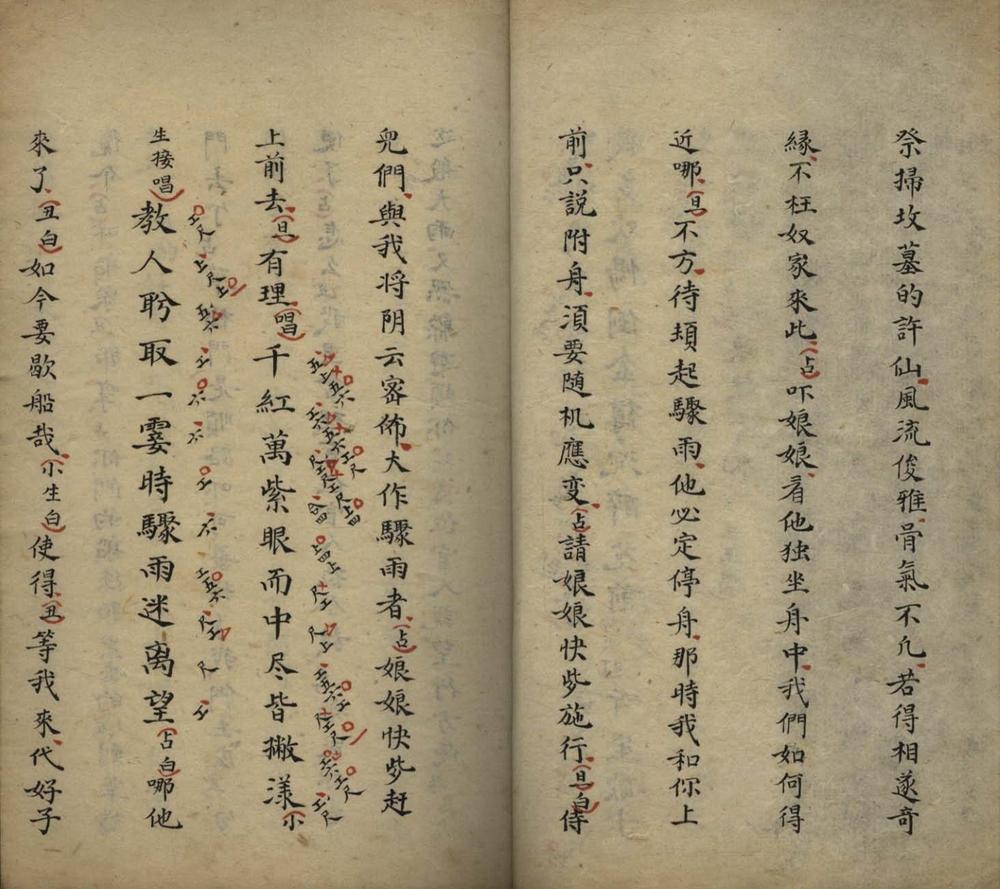 祭掃坟墓的許仙風流俊雅骨氣不凢若得相遂奇
縁不枉奴家來此(占)吓娘娘看他独坐舟中我們如何得
近哪(旦)不方待起驟雨他必定停舟那時我和你上
前只說附舟湏要随机應变(占)請娘娘快些施行(旦白)侍
兠們與我将阴云密佈大作驟雨者(占)娘娘快些赶
上前去(旦)有理(唱)千紅萬紫眼而中尽皆撇漾(小
生接唱)教人聆取一霎時驟雨迷离望(占白)哪他
來了(丑白)如今要歇船哉(小生白)使得(丑)等我來代好子